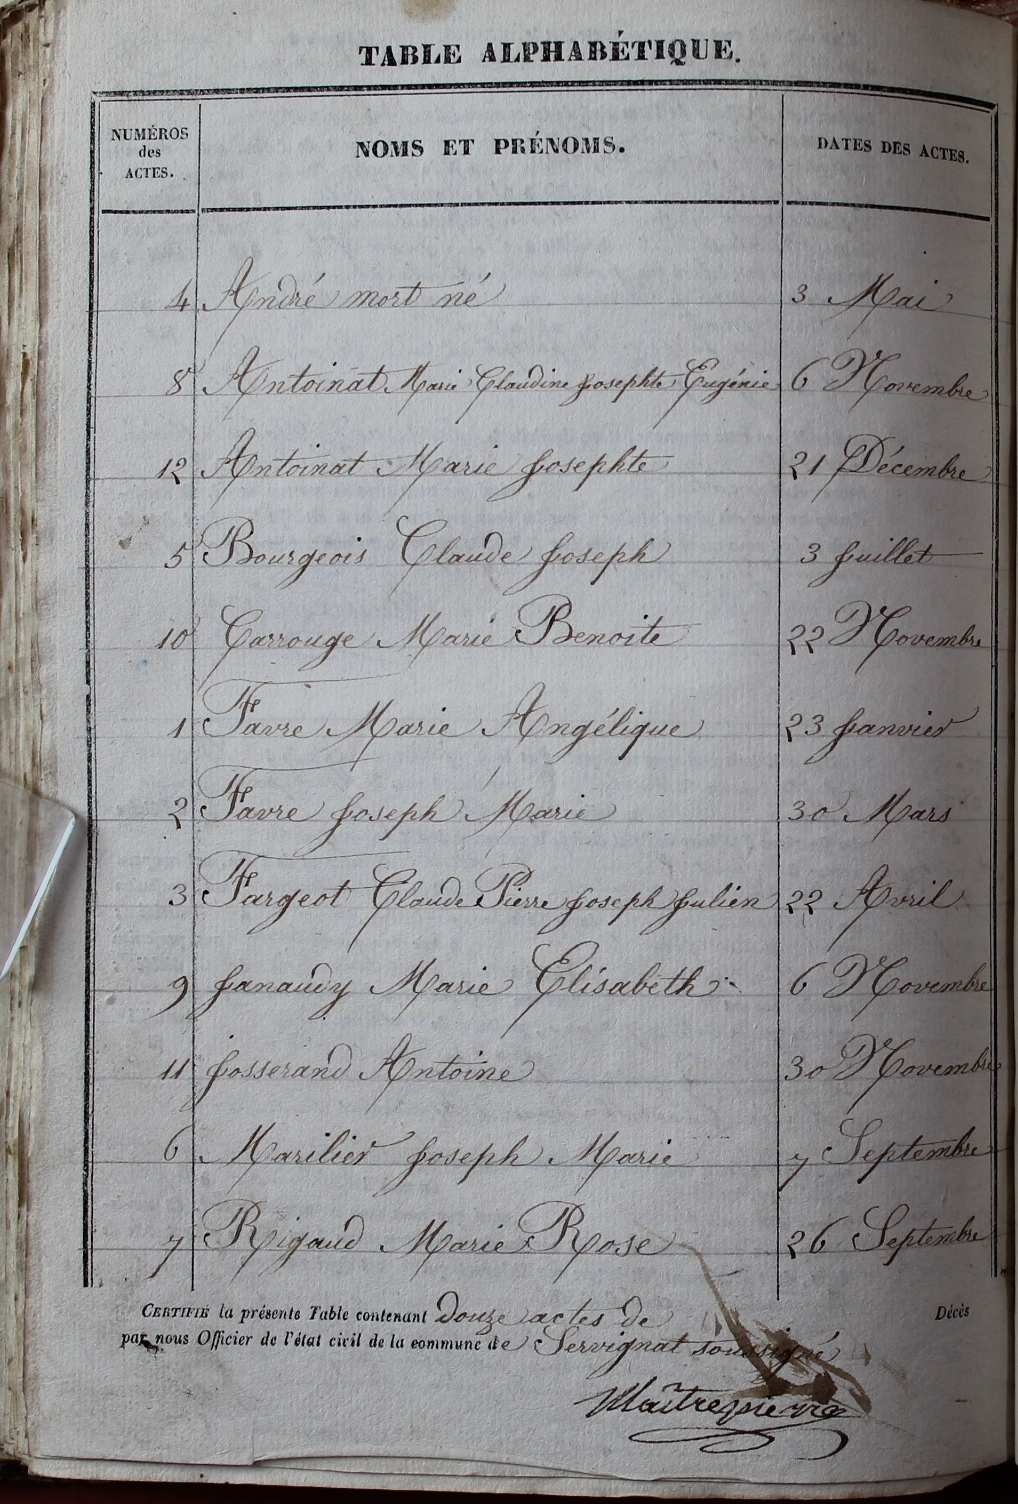 TABLE ALPHABÉTIQUE.
NUMÉROS des ACTES. NOMS ET PRÉNOMS. DATES DES ACTES.
4 André mort né 3 Mai
8 Antoinat Marie Claudine Josephte Eugénie 6 Novembre
12 Antoinat Marie Josephte 21 Décembre
5 Bourgeois Claude Joseph 3 Juillet
10 Carrouge Marie Benoite 22 Novembre
1 Favre Marie Angélique 23 Janvier
2 Favre Joseph Marie 30 Mars
3 Fargeot Claude Pierre Joseph Julien 22 Avril
9 Janaudy Marie Elisabeth 6 Novembre
11 Josserand Antoine 30 Novembre
6 Marilier Joseph Marie 7 Septembre
7 Rigaud Marie Rose 26 Septembre
CERTIFIÉ la présente Table contenant douze actes de Décès
par nous Officier de l'état civil de la commune de Servignat soussigné
Maîtrepierre